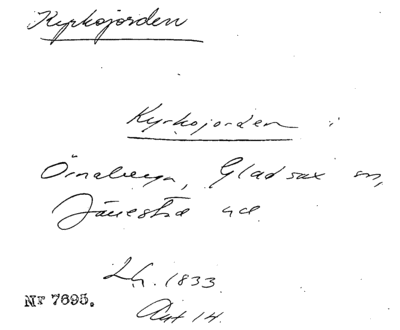 Kyrkojorden
Kyrkojorden i
Örnaberga, Gladsax sn,
Järrestad hd.
Lh. 1833
Akt 14.
Nr 7695.